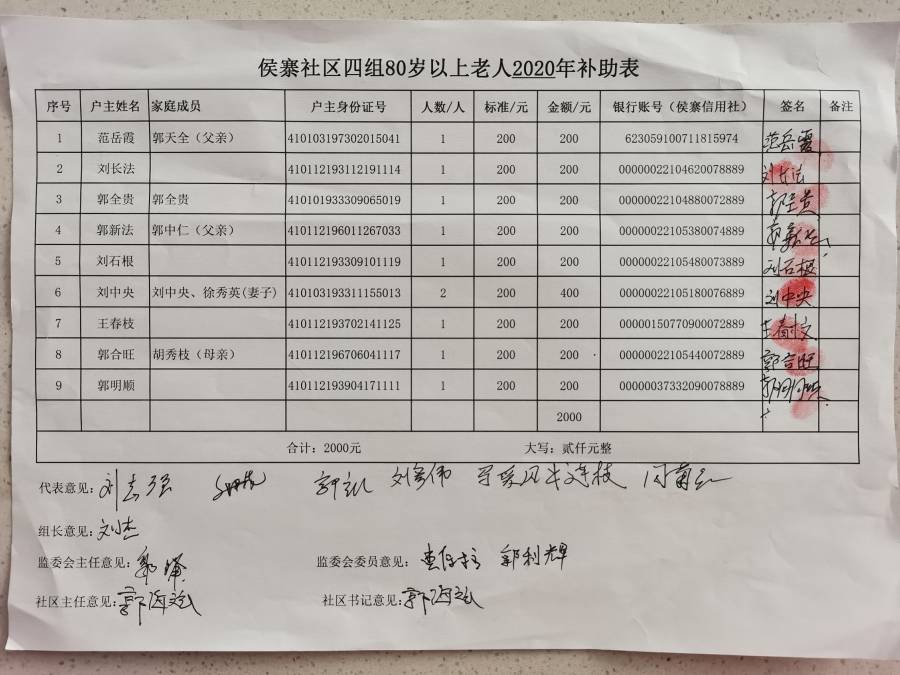 侯寨社区四组80岁以上老人2020年补助表
序号 户主姓名 家庭成员 户主身份证号 人数/人 标准/元 金额/元 银行账号（侯寨信用社） 签名 备注
1 范岳霞 郭天全（父亲） 410103197302015041 1 200 200 623059100711815974 范岳霞
2 刘长法 410112193112191114 1 200 200 00000022104620078889 刘长法
3 郭全贵 郭全贵 410101933309065019 1 200 200 00000022104880072889 郭全贵
4 郭新法 郭中仁（父亲） 410112196011267033 1 200 200 00000022105380074889
5 刘石根 410112193309101119 1 200 200 00000022105480073889 刘石根
6 刘中央 刘中央、徐秀英(妻子) 410103193311155013 2 200 400 00000022105180076889 刘中央
7 王春枝 410112193702141125 1 200 200 00000150770900072889
8 郭合旺 胡秀枝（母亲） 410112196706041117 1 200 200 00000022105440072889 郭合旺
9 郭明顺 410112193904171111 1 200 200 00000037332090078889
2000
合计：2000元 大写：贰仟元整
代表意见：刘志强
组长意见：刘杰
监委会主任意见： 监委会委员意见： 郭利辉
社区主任意见：郭海斌 社区书记意见：郭海斌